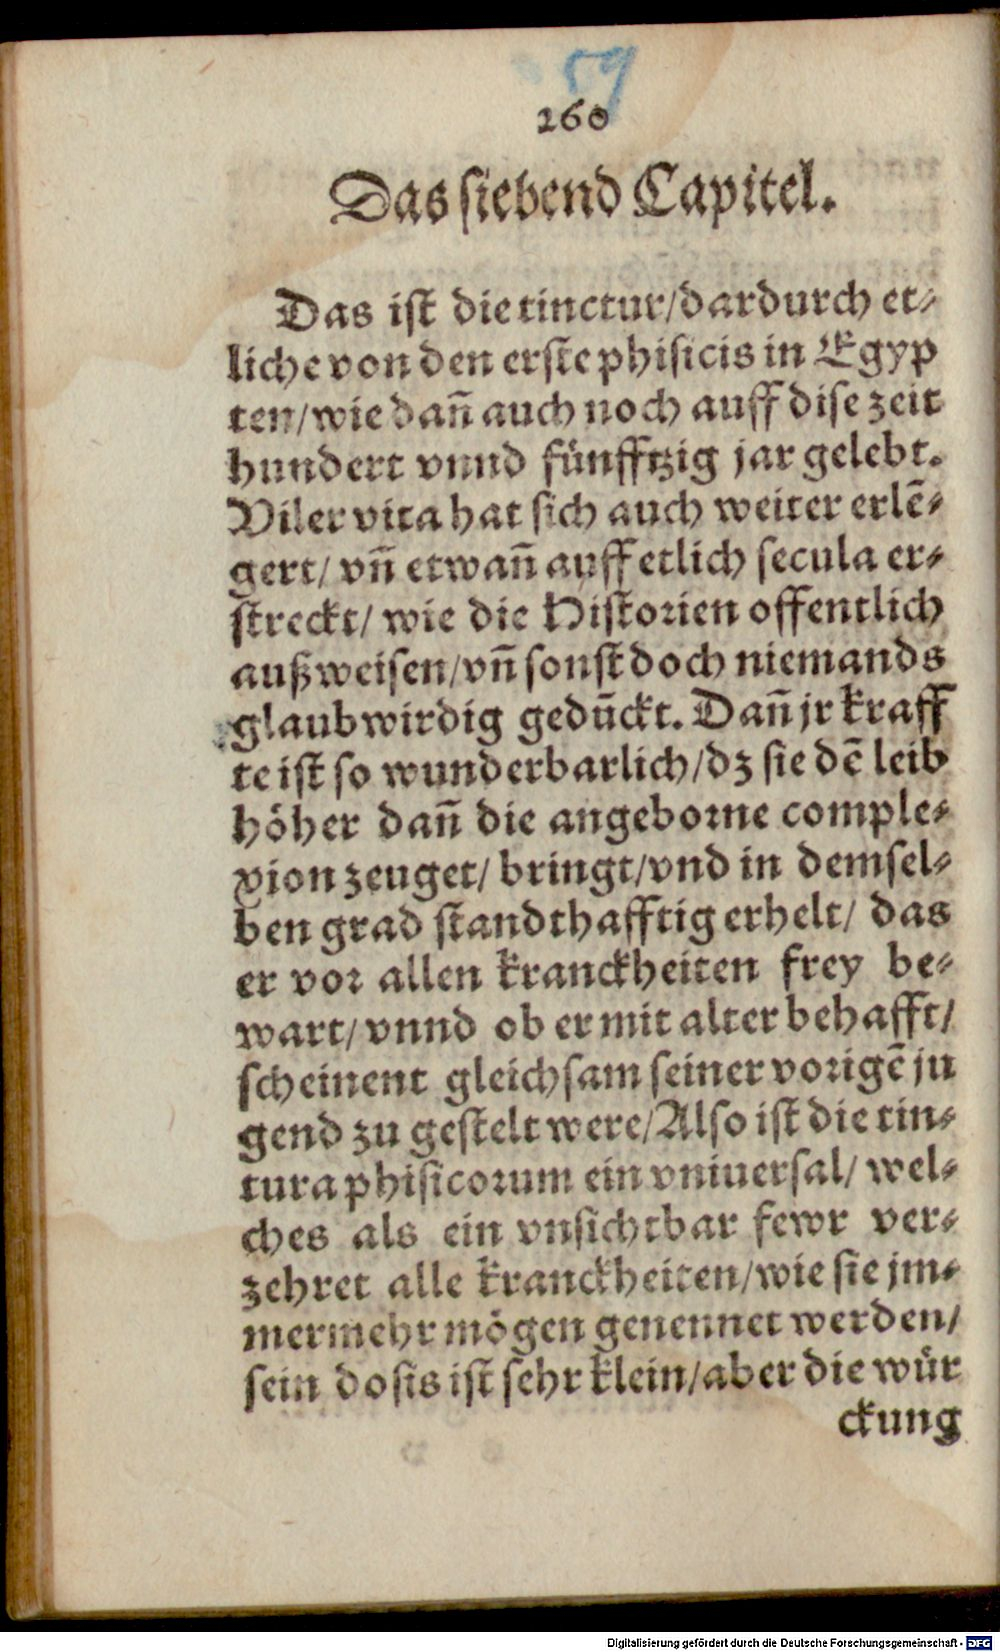 59
260
Das siebend Capitel.
Das ist die tinctur/dardurch et-
liche von den erstē phisicis in Egyp
ten/wie dañ auch noch auff dise zeit
hundert vnnd fünfftzig jar gelebt.
Viler vita hat sich auch weiter erlē-
gert/ vñ etwañ auff etlich secula er-
streckt/ wie die Historien offentlich
außweisen/vñ sonst doch niemands
glaubwirdig gedūckt. Dañ jr kraff
te ist so wunderbarlich/dz sie dē leib
höher dañ die angeborne comple-
xion zeuget/ bringt/vnd in demsel-
ben grad standthafftig erhelt/ das
er vor allen kranckheiten frey be-
wart/vnnd ob er mit alter behafft/
scheinent gleichsam seiner vorigē ju
gend zu gestelt were/Also ist die tin-
tura phisicorum ein vniuersal/ wel-
ches als ein vnsichtbar fewr ver-
zehret alle kranckheiten/wie sie jm-
mermehr mögen genennet werden/
sein dosis ist sehr klein/aber die wür
ckung
Digitalisierung gefördert durch die Deutsche Forschungsgemeinschaft - DFG